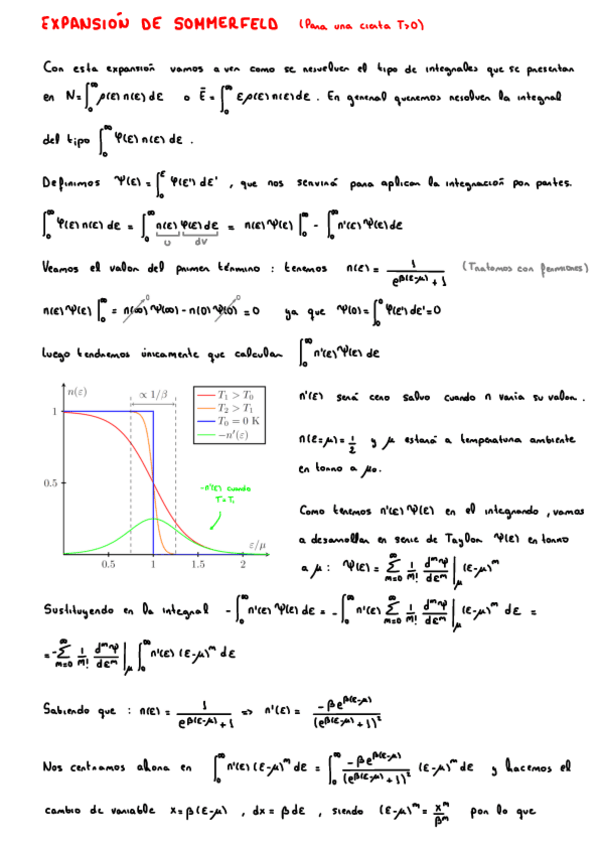 EXPANSIÓN DE SOMMERFELD (Para una cierta T>0)
Con esta expansión vamos a ver como se resuelven el tipo de integrales que se presentan
en N = ∫₀^∞ ρ(ε) n(ε) dε o Ē = ∫₀^∞ ε ρ(ε) n(ε) dε . En general queremos resolver la integral
del tipo ∫₀^∞ φ(ε) n(ε) dε .
Definimos Ψ(ε) = ∫₀^ε φ(ε') dε' , que nos servirá para aplicar la integración por partes.
∫₀^∞ φ(ε) n(ε) dε = ∫₀^∞ n(ε) φ(ε) dε = n(ε) Ψ(ε) |₀^∞ - ∫₀^∞ n'(ε) Ψ(ε) dε
u dv
Veamos el valor del primer término : tenemos n(ε) = 1 / (e^{β(ε-μ)} + 1) (Tratamos con fermiones)
n(ε) Ψ(ε) |₀^∞ = n(∞) Ψ(∞) - n(0) Ψ(0) = 0 ya que Ψ(0) = ∫₀^0 φ(ε') dε' = 0
Luego tendremos únicamente que calcular ∫₀^∞ n'(ε) Ψ(ε) dε
n(ε)
∝ 1/β
T₁ > T₀
T₂ > T₁
T₀ = 0 K
−n'(ε)
1
0.5
-n'(ε) cuando
T=T₁
0.5 1 1.5 2
ε/μ
n'(ε) será cero salvo cuando n varía su valor.
n(ε=μ) = 1/2 y μ estará a temperatura ambiente
en torno a μ₀.
Como tenemos n'(ε) Ψ(ε) en el integrando , vamos
a desarrollar en serie de Taylor Ψ(ε) en torno
a μ : Ψ(ε) = Σ_{m=0}^∞ 1/m! d^mΨ/dε^m |_μ (ε-μ)^m
Sustituyendo en la integral - ∫₀^∞ n'(ε) Ψ(ε) dε = - ∫₀^∞ n'(ε) Σ_{m=0}^∞ 1/m! d^mΨ/dε^m |_μ (ε-μ)^m dε =
= - Σ_{m=0}^∞ 1/m! d^mΨ/dε^m |_μ ∫₀^∞ n'(ε) (ε-μ)^m dε
Sabiendo que : n(ε) = 1 / (e^{β(ε-μ)} + 1) => n'(ε) = -β e^{β(ε-μ)} / (e^{β(ε-μ)} + 1)²
Nos centramos ahora en ∫₀^∞ n'(ε) (ε-μ)^m dε = ∫₀^∞ -β e^{β(ε-μ)} / (e^{β(ε-μ)} + 1)² (ε-μ)^m dε y hacemos el
cambio de variable x = β(ε-μ) , dx = β dε , siendo (ε-μ)^m = x^m / β^m por lo que